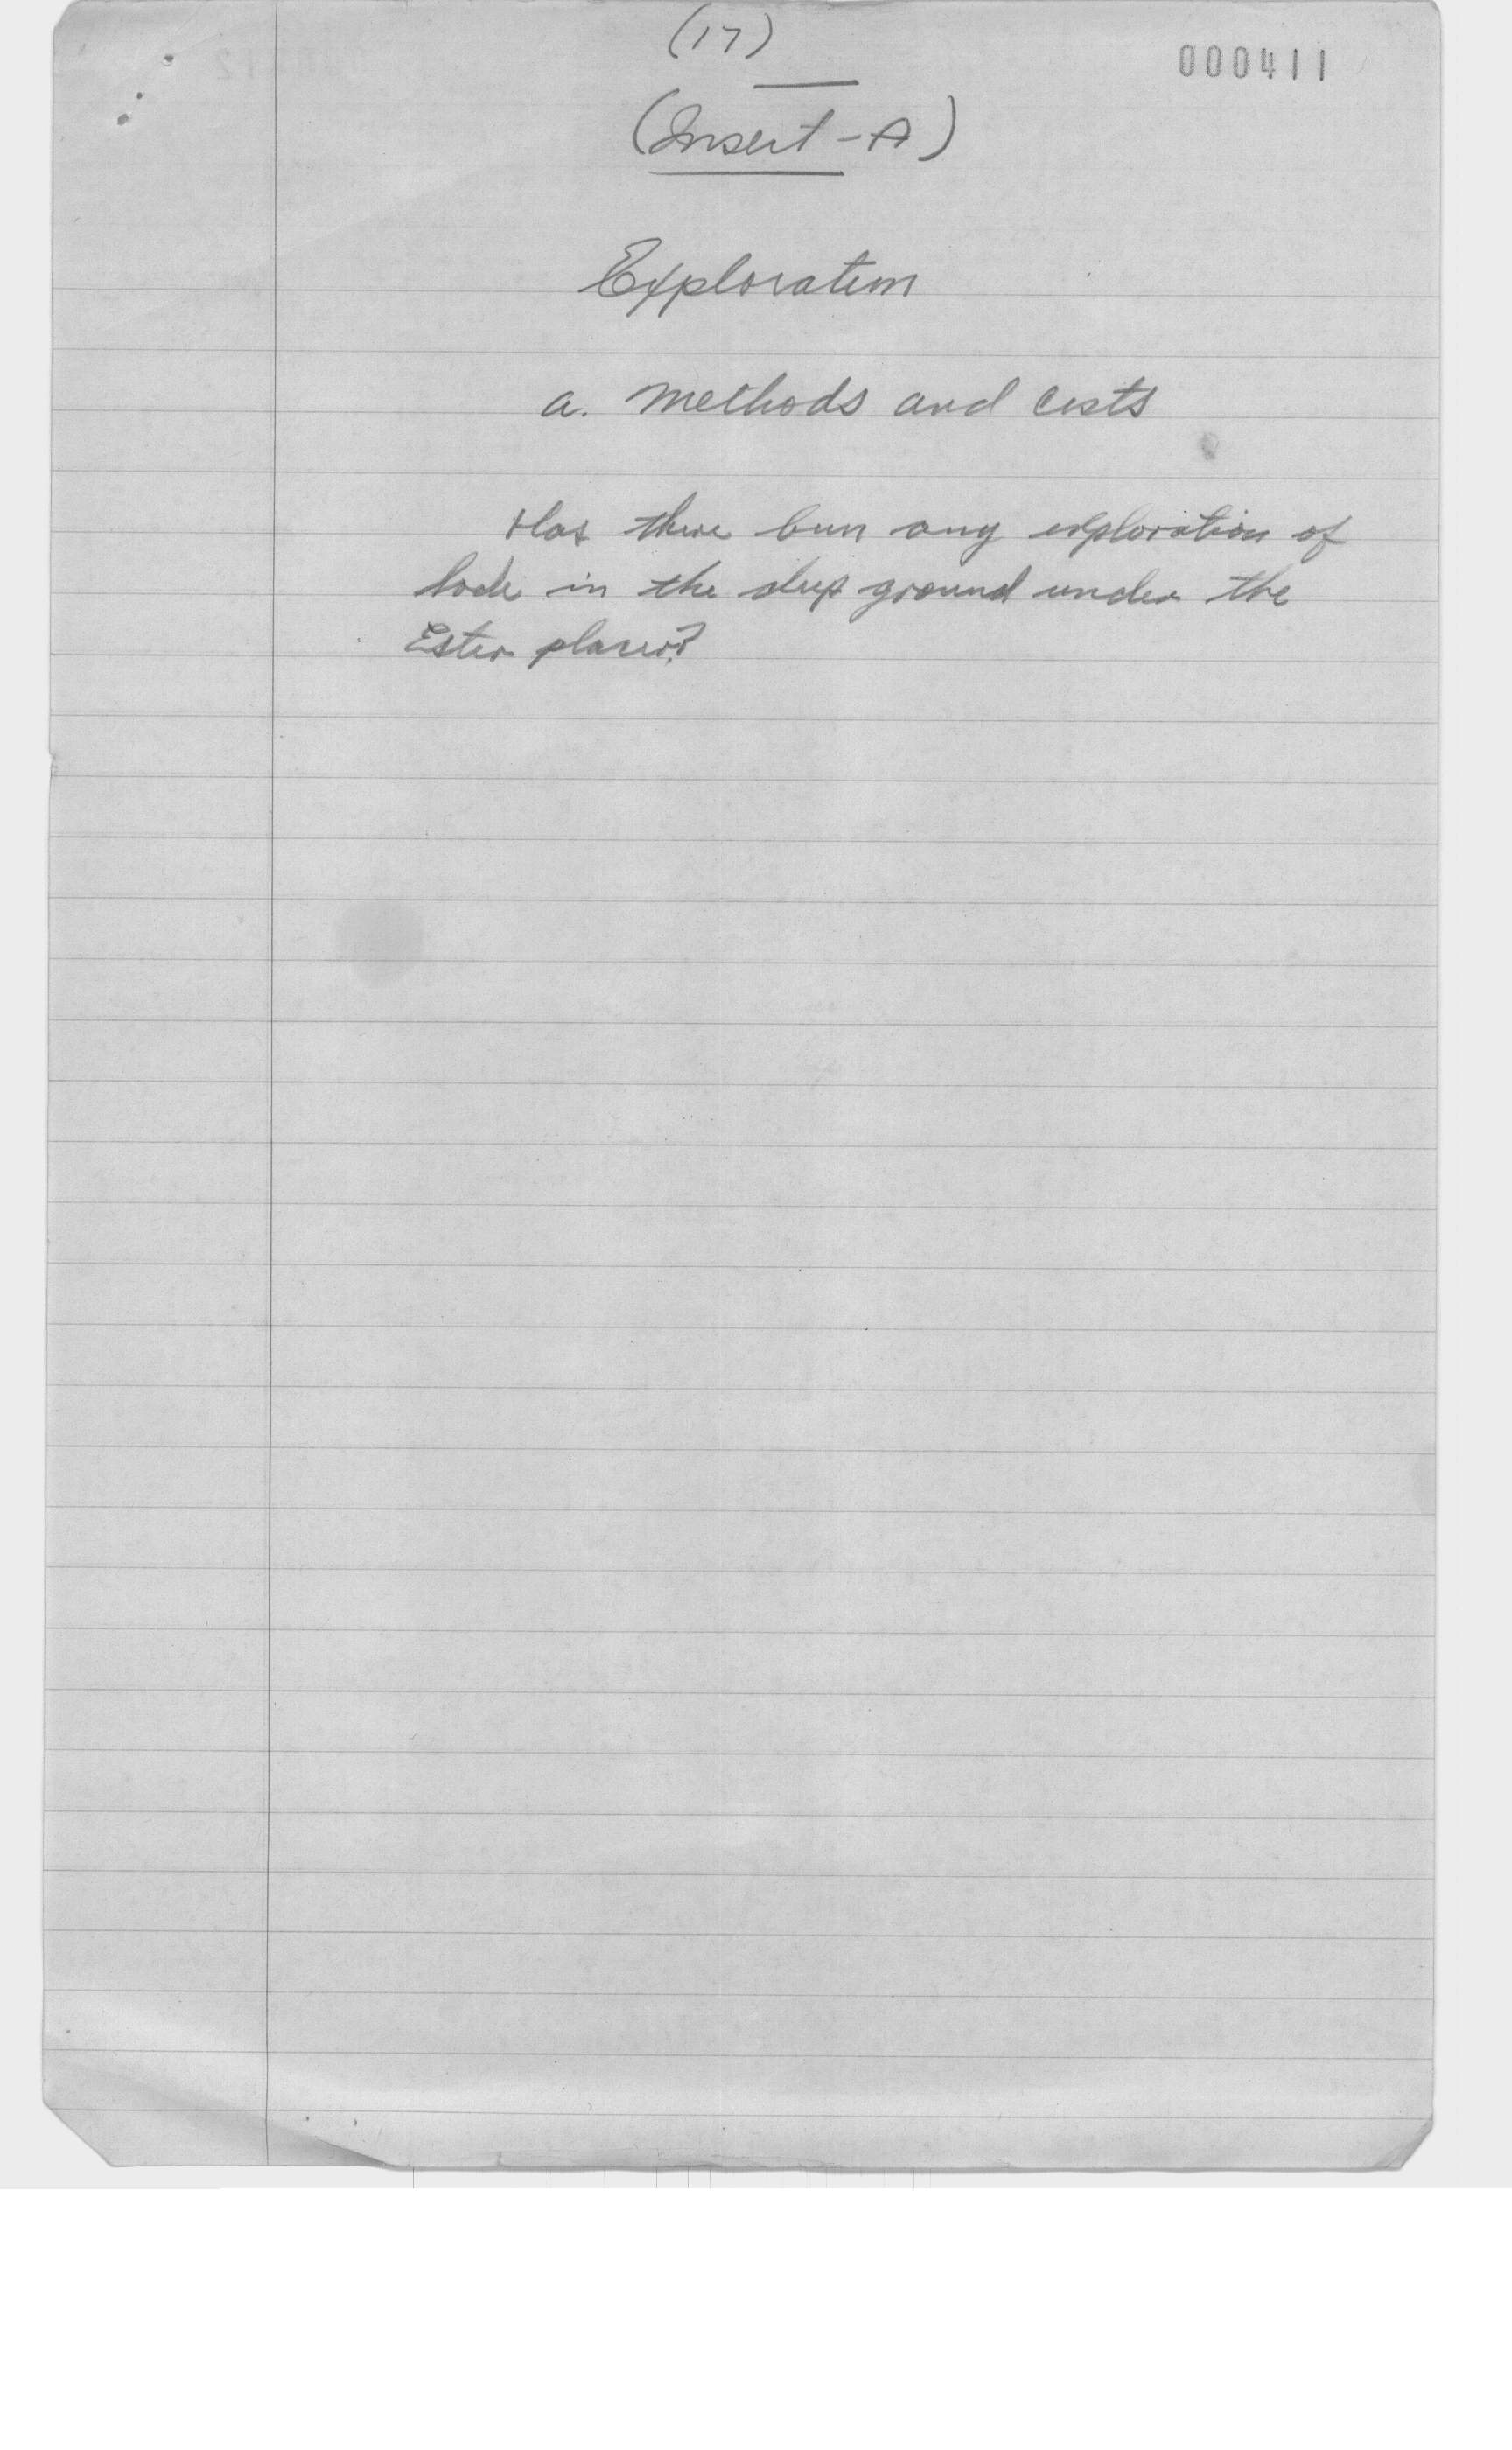 (17)
000411
(Insert - A)
Exploration
a. Methods and Costs
Has there been any exploration of
lode in the deep ground under the
Ester placer?